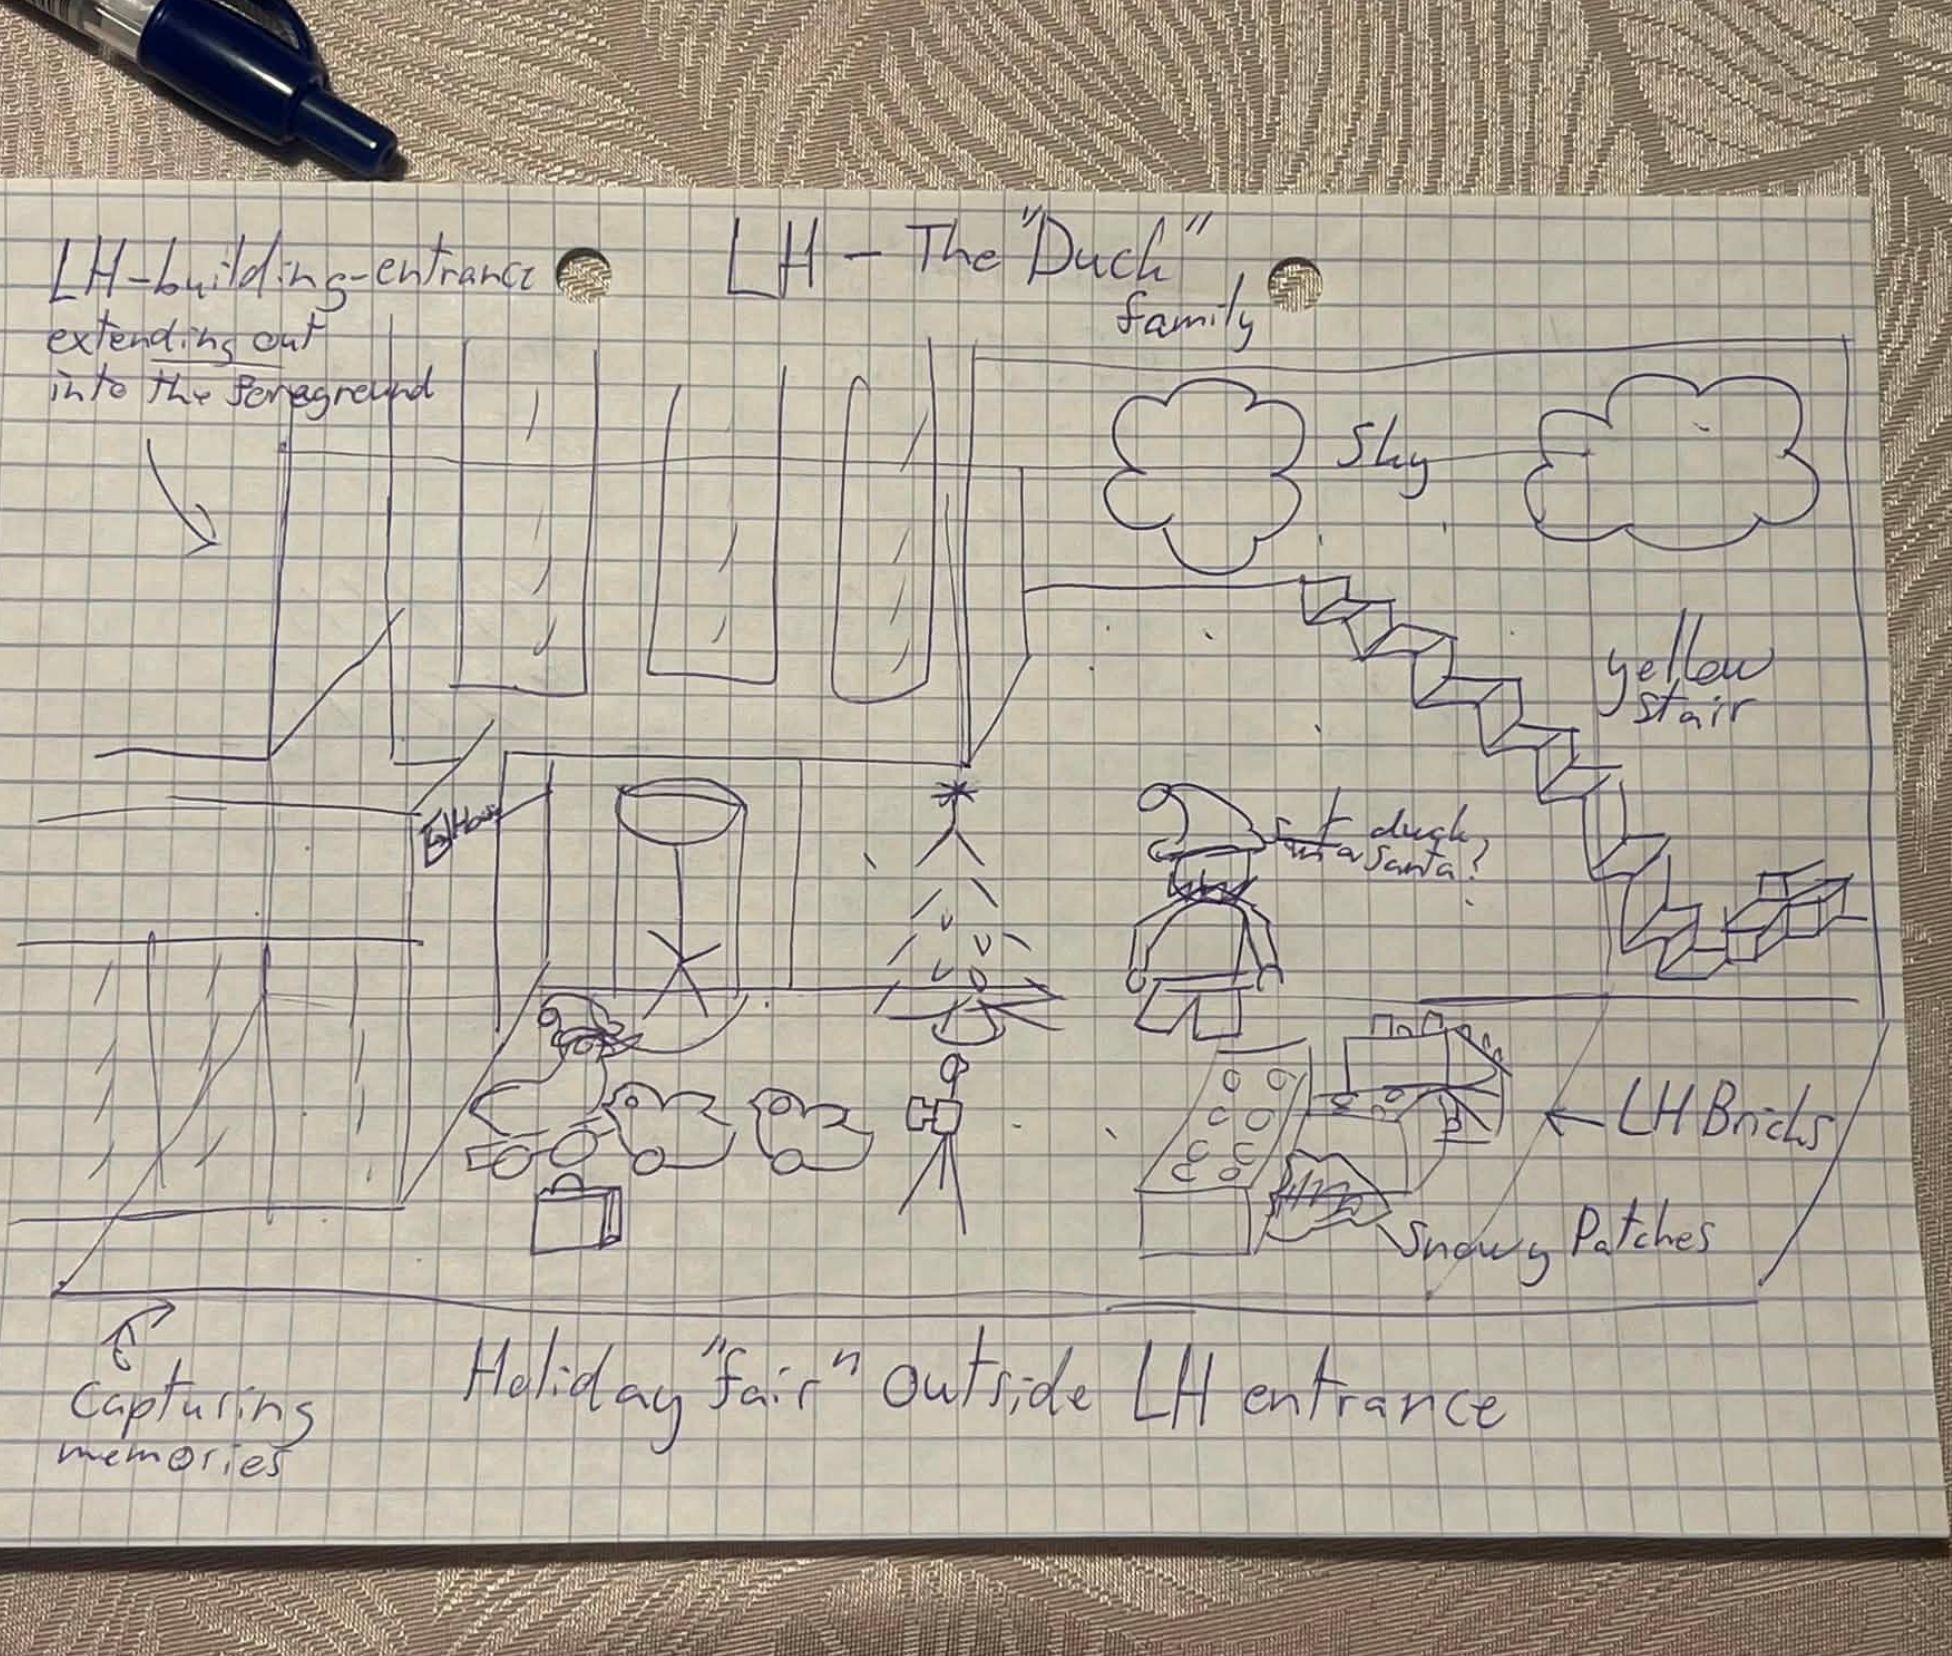 LH-building-entrance
extending out
into the foreground
LH - The "Duck"
family
Sky
yellow
stair
duck
Santa?
LH Bricks
Snowy Patches
Capturing
memories
Holiday "fair" outside LH entrance